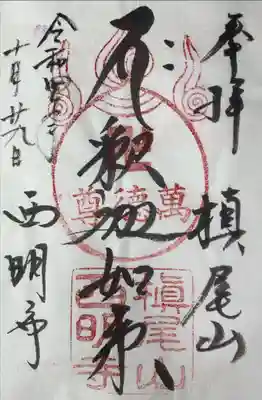 奉拝 槇尾山
釈迦如来
令和四年
十月廿九日
西明寺
萬徳尊
槇尾山
西明寺